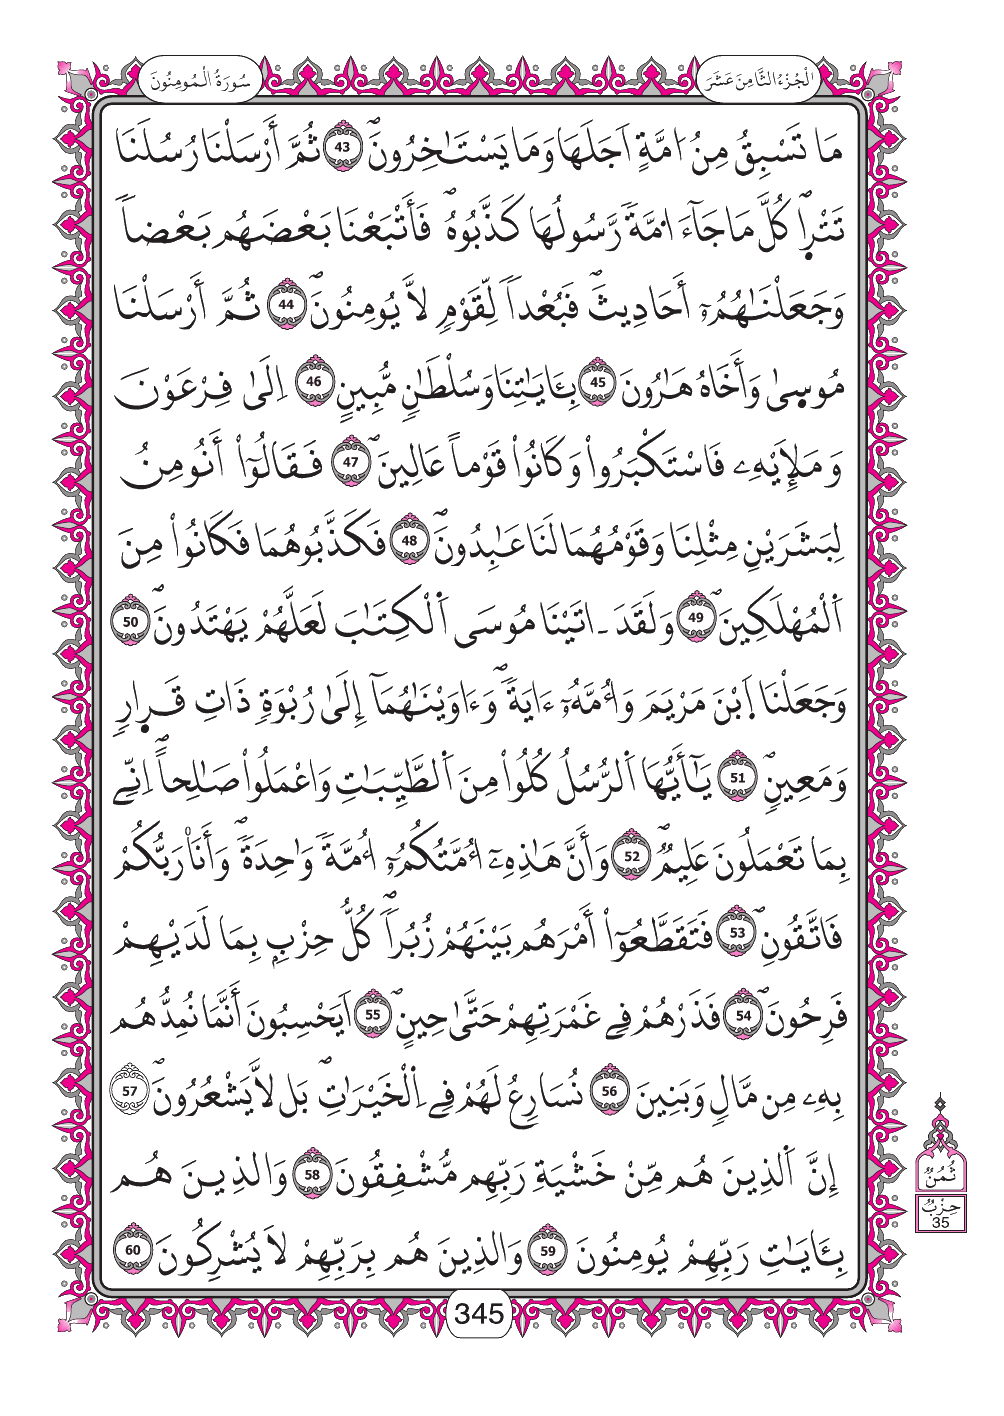 الْجُزْءُ الثَّامِنَ عَشَرَ
سُورَةُ الْمُومِنُونَ
مَا تَسْبِقُ مِنُ ا۟مَّةٍ اَجَلَهَا وَمَا يَسْتَـٰخِرُونَۖ 43 ثُمَّ أَرْسَلْنَا رُسُلَنَا
تَتْر۪اۖ كُلَّ مَا جَآءَ ا۟مَّةٗ رَّسُولُهَا كَذَّبُوهُۖ فَأَتْبَعْنَا بَعْضَهُم بَعْضاٗ
وَجَعَلْنَـٰهُمُۥٓ أَحَادِيثَۖ فَبُعْداٗ لِّقَوْمٖ لاَّ يُومِنُونَۖ 44 ثُمَّ أَرْسَلْنَا
مُوس۪ىٰ وَأَخَاهُ هَـٰرُونَ 45 بِـَٔايَـٰتِنَا وَسُلْطَـٰنٖ مُّبِينٍ 46 اِلَىٰ فِرْعَوْنَ
وَمَلَإِيْهِۦ فَاسْتَكْبَرُواْ وَكَانُواْ قَوْماً عَالِينَۖ 47 فَقَالُوٓاْ أَنُومِنُ
لِبَشَرَيْنِ مِثْلِنَا وَقَوْمُهُمَا لَنَا عَـٰبِدُونَۖ 48 فَكَذَّبُوهُمَا فَكَانُواْ مِنَ
اَ۬لْمُهْلَكِينَۖ 49 وَلَقَدَ ـ اتَيْنَا مُوسَى اَ۬لْكِتَـٰبَ لَعَلَّهُمْ يَهْتَدُونَۖ 50
وَجَعَلْنَا اَ۪بْنَ مَرْيَمَ وَأُمَّهُۥٓ ءَايَةٗۖ وَءَاوَيْنَـٰهُمَآ إِلَىٰ رُبْوَةٖ ذَاتِ قَر۪ارٖ
وَمَعِينٖۖ 51 يَـٰٓأَيُّهَا اَ۬لرُّسُلُ كُلُواْ مِنَ اَ۬لطَّيِّبَـٰتِ وَاعْمَلُواْ صَـٰلِحاًۖ اِنِّے
بِمَا تَعْمَلُونَ عَلِيمٞۖ 52 وَأَنَّ هَـٰذِهِۦٓ أُمَّتُكُمُۥٓ أُمَّةٗ وَٰحِدَةٗۖ وَأَنَا۠ رَبُّكُمْ
فَاتَّقُونِۖ 53 فَتَقَطَّعُوٓاْ أَمْرَهُم بَيْنَهُمْ زُبُراٗۖ كُلُّ حِزْبِۢ بِمَا لَدَيْهِمْ
فَرِحُونَۖ 54 فَذَرْهُمْ فِے غَمْرَتِهِمْ حَتَّىٰ حِينٍۖ 55 اَيَحْسِبُونَ أَنَّمَا نُمِدُّهُم
بِهِۦ مِن مَّالٖ وَبَنِينَ 56 نُسَارِعُ لَهُمْ فِے اِ۬لْخَيْرَٰتِۖ بَل لاَّ يَشْعُرُونَۖ 57
إِنَّ اَ۬لذِينَ هُم مِّنْ خَشْيَةِ رَبِّهِم مُّشْفِقُونَ 58 وَالذِينَ هُم
بِـَٔايَـٰتِ رَبِّهِمْ يُومِنُونَ 59 وَالذِينَ هُم بِرَبِّهِمْ لاَ يُشْرِكُونَ 60
ثُمُنٌ
حِزْبُ
35
345